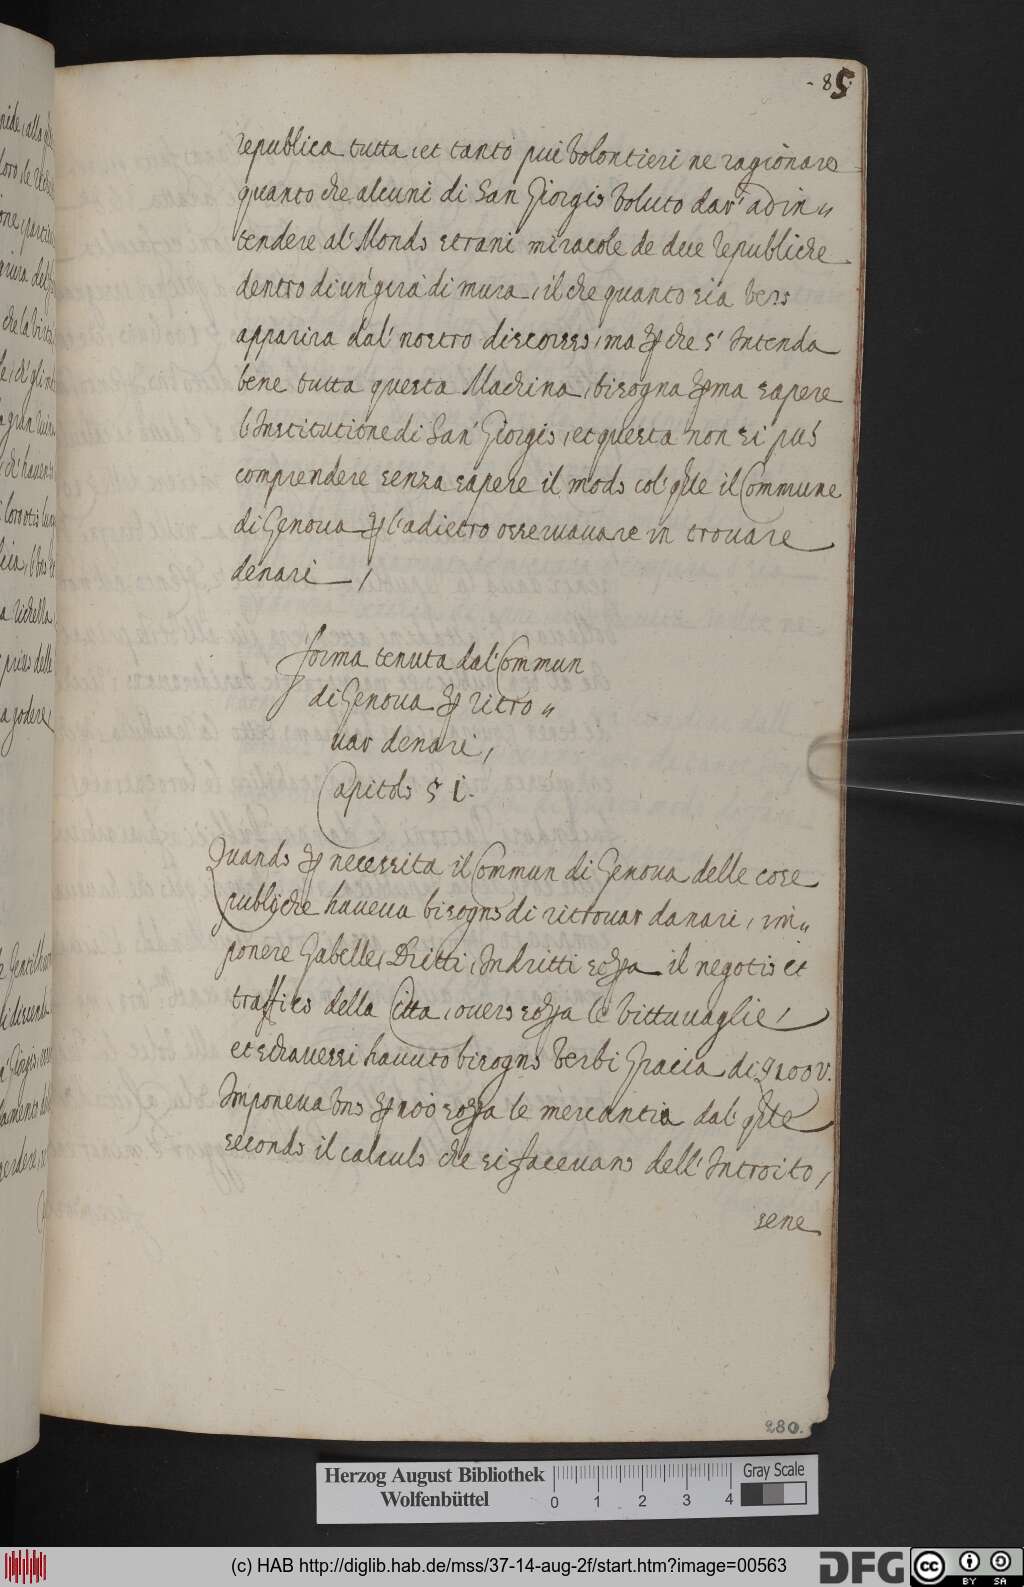 85
republica tutta, et tanto piu volontieri ne ragionaro
quanto che alcuni di San Giorgio voluto dar' ad in„
tendere al' Mondo strani miracole de due republiche
dentro di un' gira di mura, il che quanto sia vero
apparira dal' nostro discorso, ma p che s' Intenda
bene tutta questa Machina, bisogna pma sapere
l'Institutione di San' Giorgio, et questa non si può
comprendere senza sapere il modo col' qle il Commune
di Genova p l'adietro osservavare in trovare
denari,
forma tenuta dal' Commun
di Genova p ritro„
var denari,
Capitolo 51.
Quando p necessita il Commun di Genova delle cose
publiche haveva bisogno di ritrovar danari, im„
ponere Gabelle, Dritti, Indritti sopra il negotio et
traffico della Citta, overo sopra le vittuvaglie,
et havuto bisogno verbi gracia di
Imponeva sopra le mercantia dal' qle
secondo il calculo che si facevano dell' Introito,
sene
280.
nide, alla
loro, le
che la
a gran
di havere
lia,
a
prius delle
a godere,
Herzog August Bibliothek
Wolfenbüttel
0 1 2 3 4
Gray Scale
(c) HAB http://diglib.hab.de/mss/37-14-aug-2f/start.htm?image=00563
DFG
cc BY SA